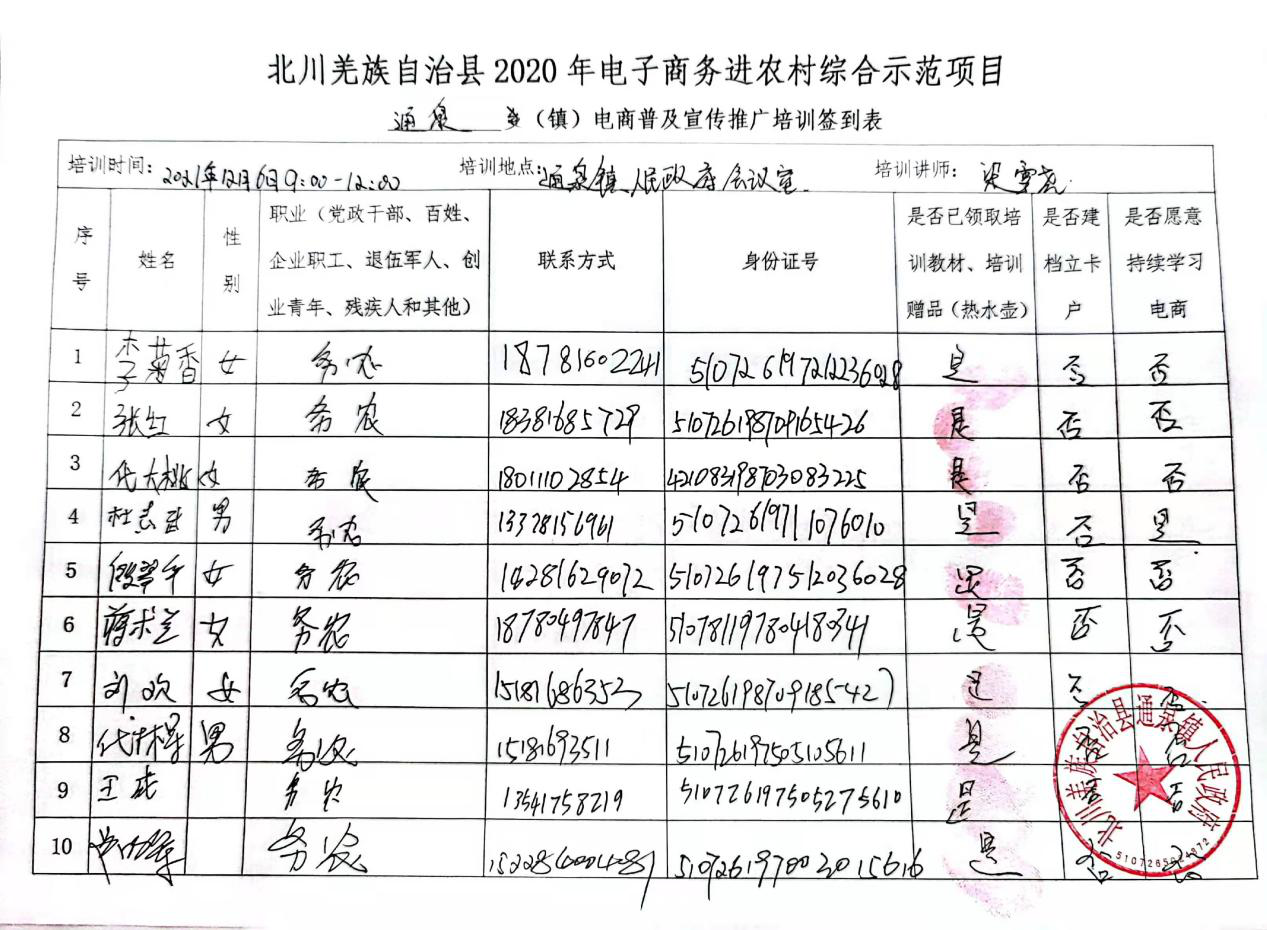 北川羌族自治县 2020 年电子商务进农村综合示范项目
通泉 乡（镇）电商普及宣传推广培训签到表
培训时间：2021年12月6日9:00-12:00 培训地点：通泉镇人民政府会议室 培训讲师：
序号 姓名 性别 职业（党政干部、百姓、企业职工、退伍军人、创业青年、残疾人和其他） 联系方式 身份证号 是否已领取培训教材、培训赠品（热水壶） 是否建档立卡户 是否愿意持续学习电商
1 李菊香 女 务农 18781602241 510726197212236028 是 否 否
2 张红 女 务农 18381685729 510726198709165426 是 否 否
3 代大桃 女 务农 18011102854 421083198703083225 是 否 否
4 男 务农 13328156961 51072619711076010 是 否 是
5 女 务农 510726197512036028 是 否 否
6 女 务农 18780497847 是 否 否
7 刘欢 女 务农 15181686353 510726198709185427 是 否 否
8 男 务农 15181693511 510726197505105611 是 否 否
9 王成 务农 13541758219 510726197505275610 是 否 否
10 务农 510726197802015616 是 否 否
北川羌族自治县通泉镇人民政府